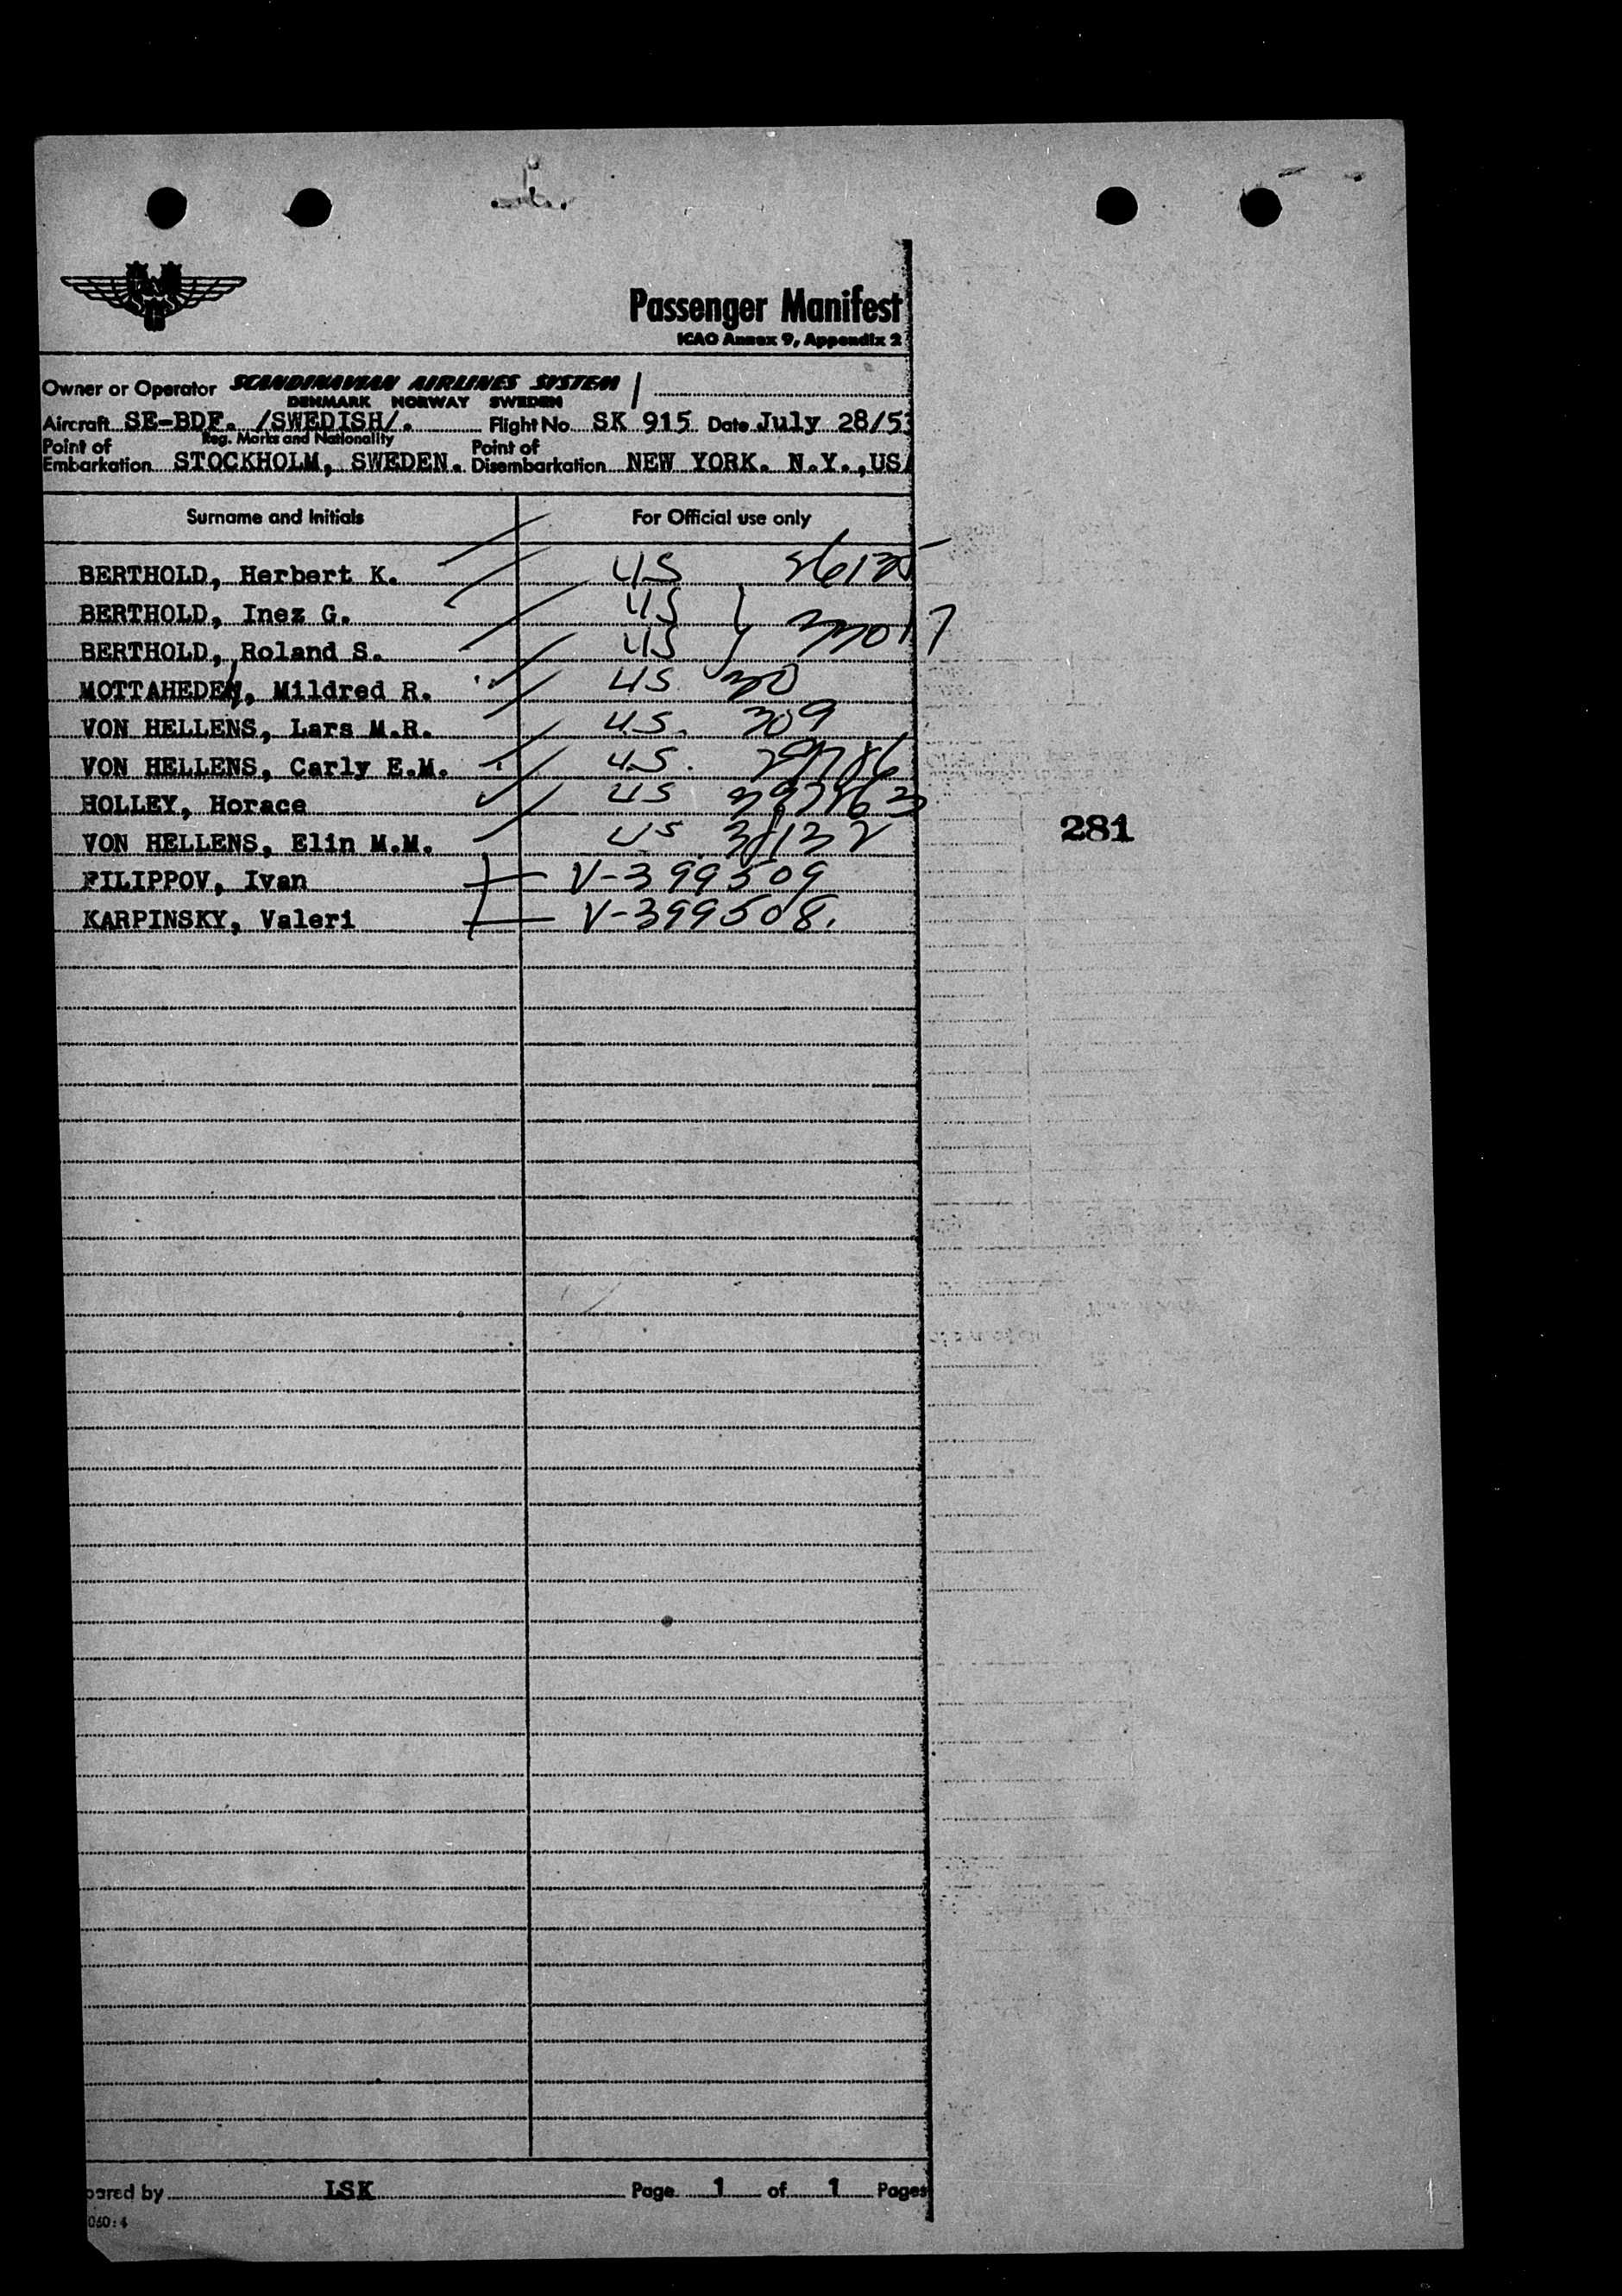 Passenger Manifest
ICAO Annex 9, Appendix 2
Owner or Operator SCANDINAVIAN AIRLINES SYSTEM
DENMARK NORWAY SWEDEN
Aircraft SE-BDF. /SWEDISH/. Flight No. SK 915 Date July 28/53
Reg. Marks and Nationality
Point of Embarkation STOCKHOLM, SWEDEN. Point of Disembarkation NEW YORK. N.Y.,US
Surname and Initials For Official use only
BERTHOLD, Herbert K. US
BERTHOLD, Inez G. US
BERTHOLD, Roland S. US
MOTTAHEDEH, Mildred R. US 30
VON HELLENS, Lars M.R. U.S. 309
VON HELLENS, Carly E.M. U.S.
HOLLEY, Horace US
281
VON HELLENS, Elin M.M. US 38132
FILIPPOV, Ivan V-399509
KARPINSKY, Valeri V-399508.
pared by LSK Page 1 of 1 Pages
060:4